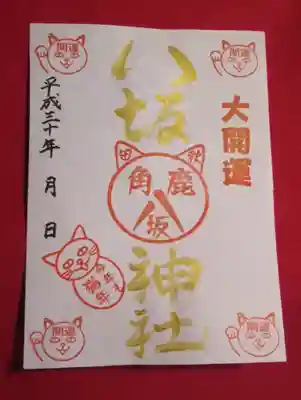 大開運
八坂神社
鹿角
八坂
平成三十年 月 日
開運
開運
開運
開運